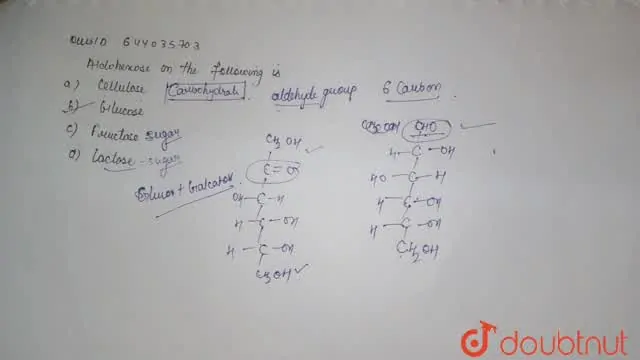 QuesID 644035703
Aldohexose on the following is
a) Cellulose Carbohydrate aldehyde group 6 Carbon
b) Glucose
c) Fructose sugar
d) Lactose - sugar
CH3OH
C=O
OH-C-H
H-C-OH
H-C-OH
CH3OH
CHO
H-C-OH
HO-C-H
H-C-OH
H-C-OH
CH2OH
doubtnut